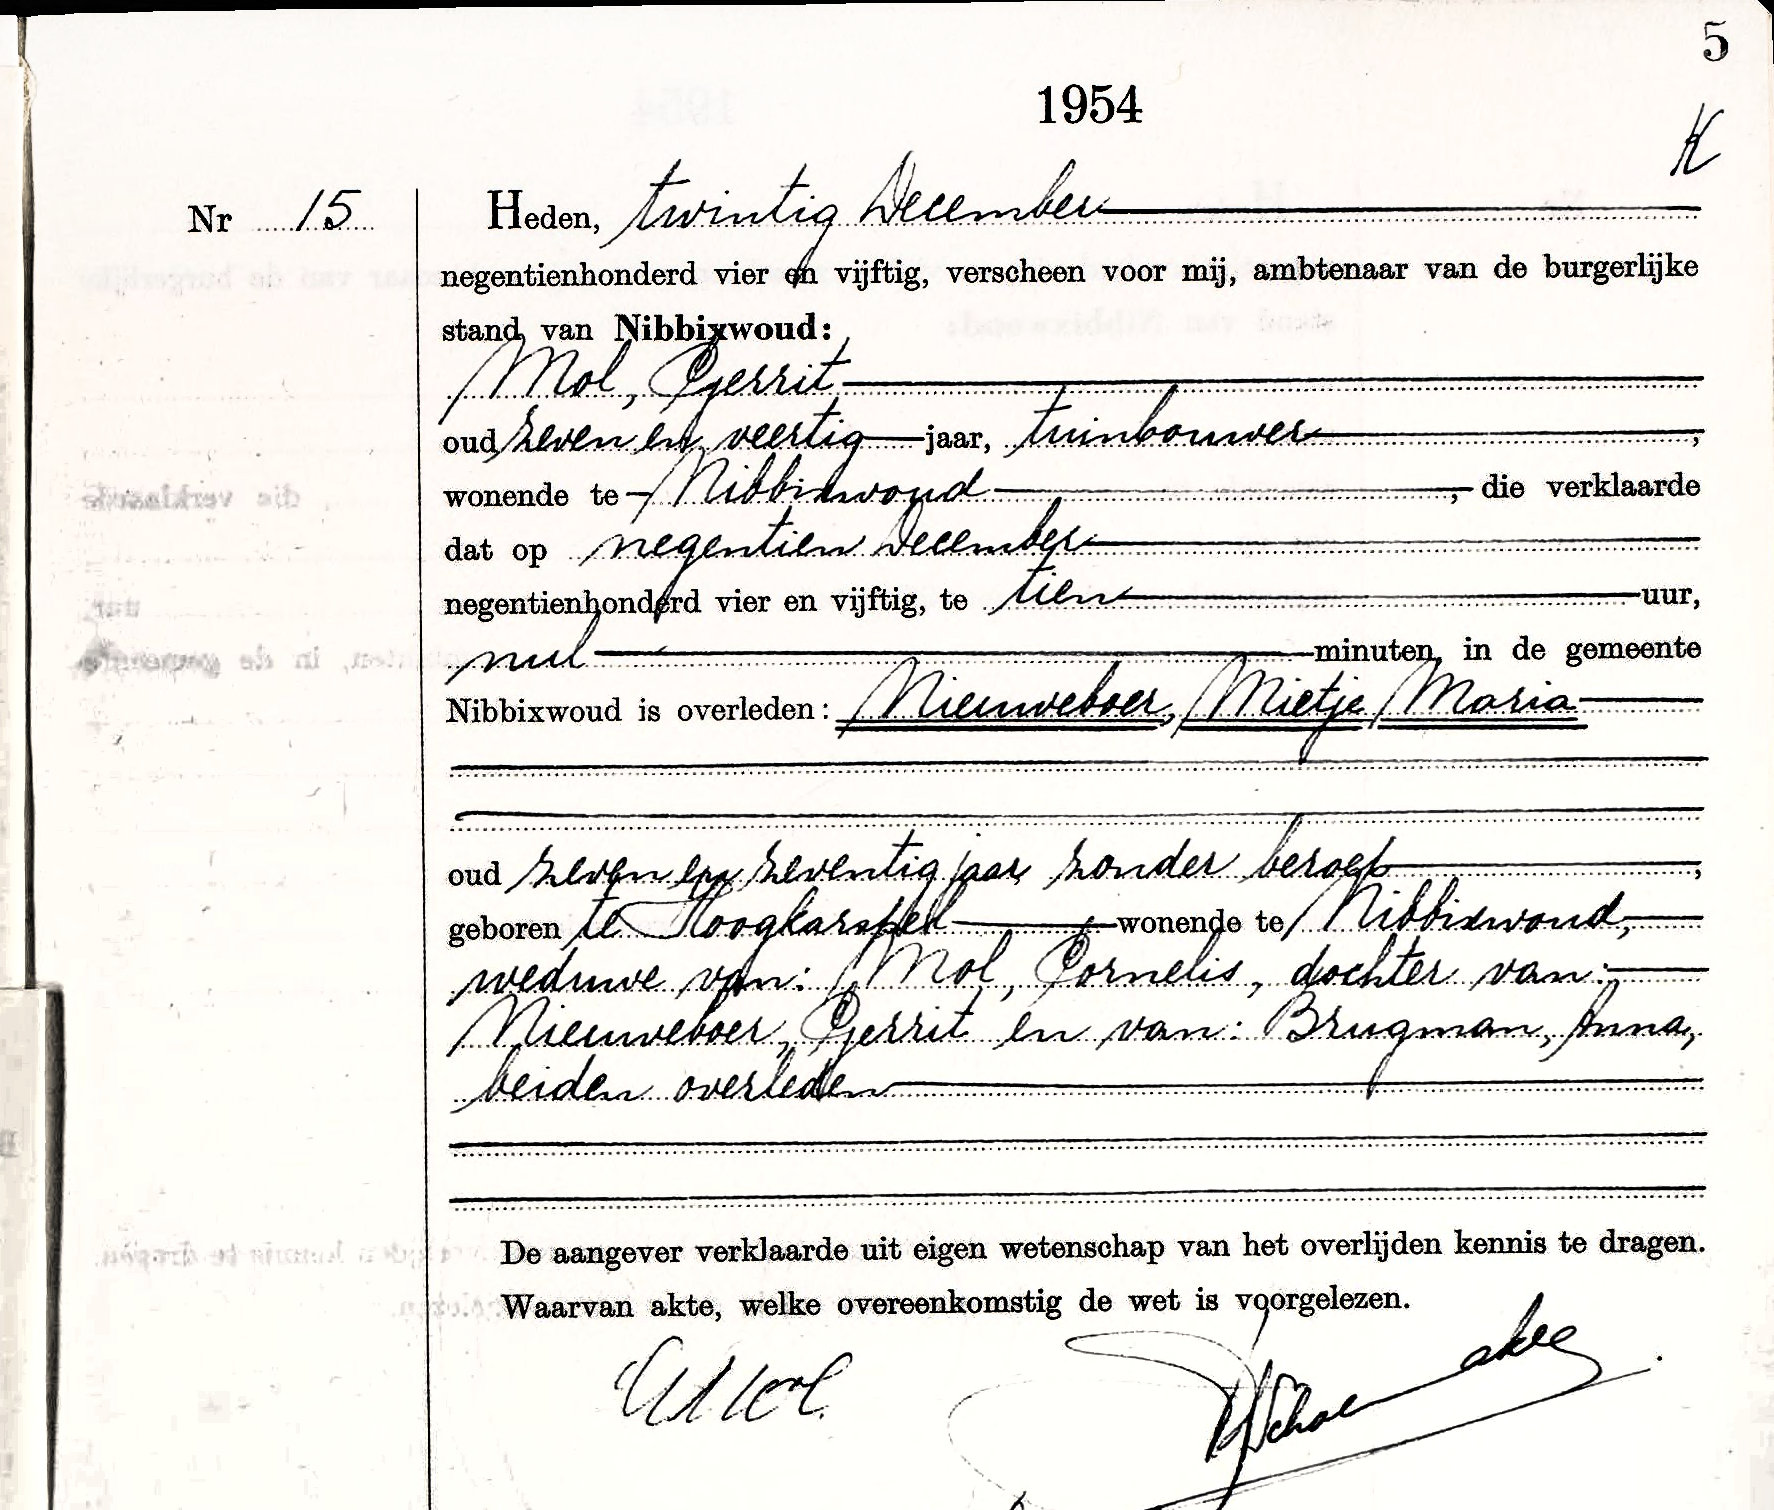 5
1954
K
Nr 15
Heden, twintig December
negentienhonderd vier en vijftig, verscheen voor mij, ambtenaar van de burgerlijke
stand van Nibbixwoud:
Mol, Gerrit
oud zeven en veertig jaar, tuinbouwer,
wonende te Nibbixwoud, die verklaarde
dat op negentien December
negentienhonderd vier en vijftig, te tien uur,
nul minuten, in de gemeente
Nibbixwoud is overleden: Nieuweboer, Mietje Maria
oud zeven en zeventig jaar zonder beroep,
geboren te Hoogkarspel wonende te Nibbixwoud,
weduwe van: Mol, Cornelis, dochter van:
Nieuweboer, Gerrit en van: Brugman, Anna,
beiden overleden
De aangever verklaarde uit eigen wetenschap van het overlijden kennis te dragen.
Waarvan akte, welke overeenkomstig de wet is voorgelezen.
G Mol.